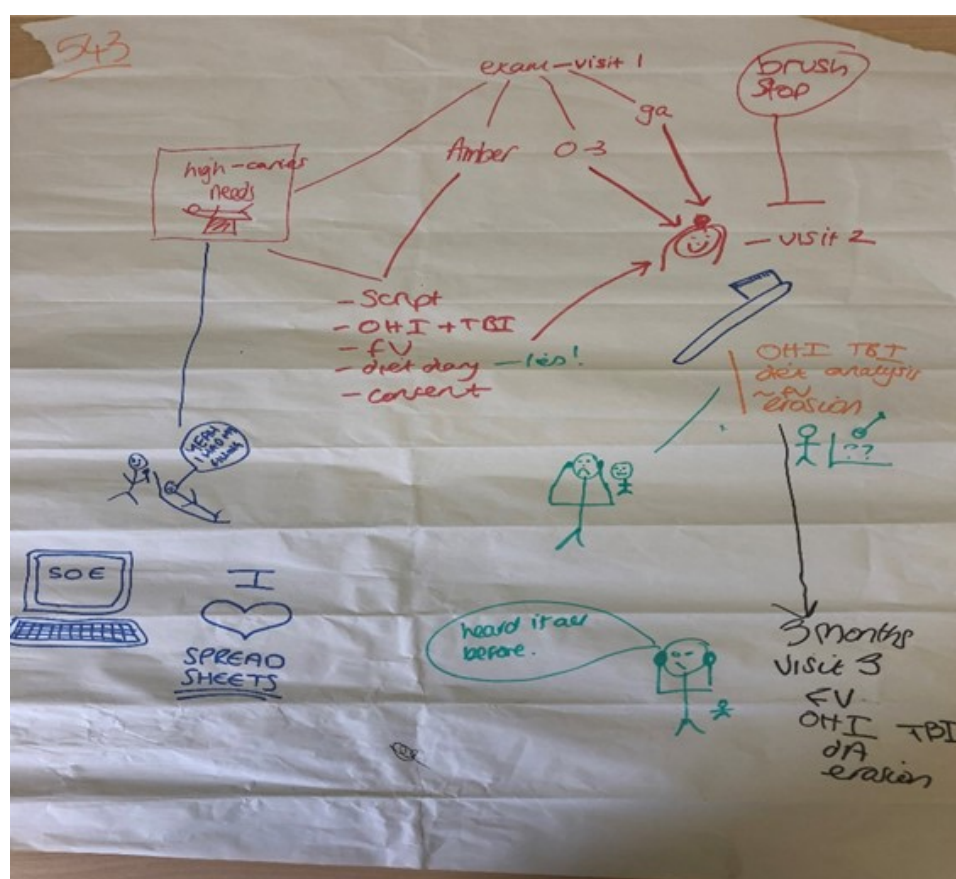 543
exam - visit 1
brush
stop
ga
Amber 0-3
high-caries
needs
- visit 2
- Script
- OHI + TBI
- fV
- diet diary - lies!
- consent
OHI TBI
diet analysis
- fV
erosion
YEAH
I HAD MY
FILLING
??
SOE
I
SPREAD
SHEETS
heard it all
before.
3 months
visit 3
FV
OHI TBI
dA
erosion